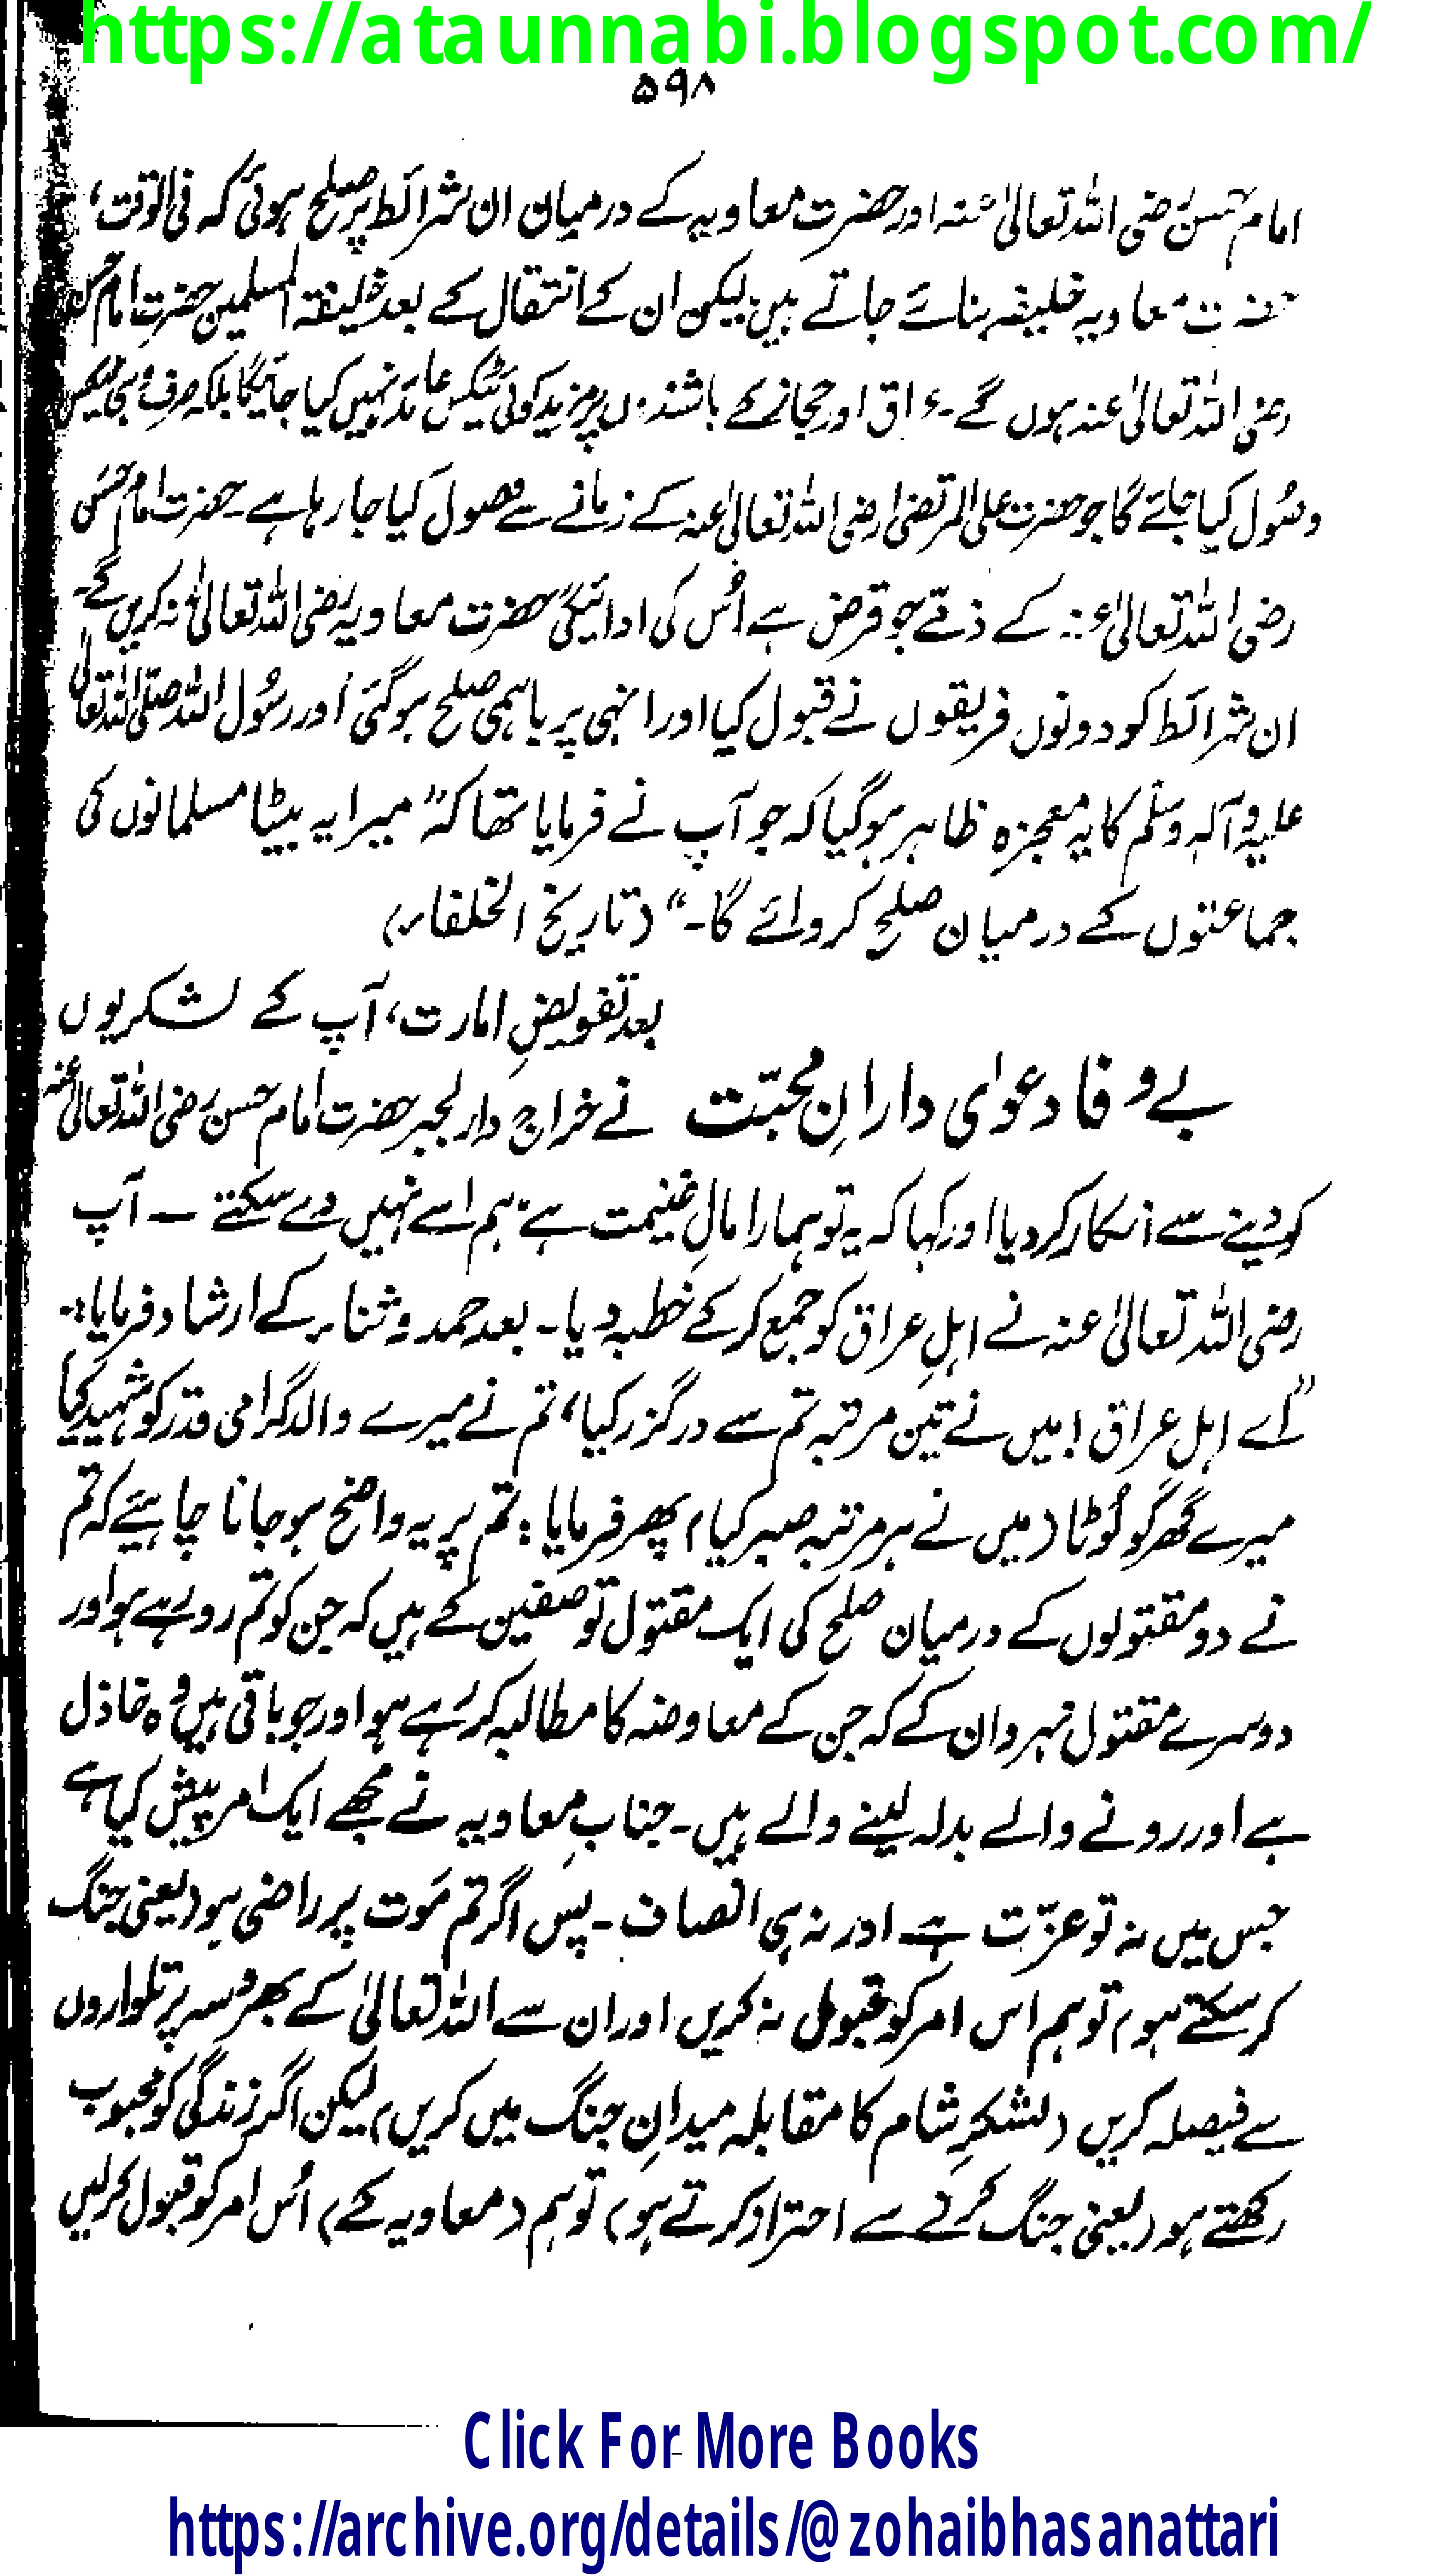 https://ataunnabi.blogspot.com/
۵۹۸
امام حسن رضی اللہ تعالیٰ عنہ اور حضرت معاویہ کے درمیان ان شرائط پر صلح ہوئی کہ فی الوقت،
حضرت معاویہ خلیفہ بنائے جاتے ہیں لیکن ان کے انتقال کے بعد خلیفۃ المسلمین حضرت امام حسن
رضی اللہ تعالیٰ عنہ ہوں گے۔ عراق اور حجاز کے باشندوں پر مزید کوئی ٹیکس عائد نہیں کیا جائیگا بلکہ صرف وہی ٹیکس
وصول کیا جائے گا جو حضرت علی المرتضیٰ رضی اللہ تعالیٰ عنہ کے زمانے سے وصول کیا جا رہا ہے۔ حضرت امام حسن
رضی اللہ تعالیٰ عنہ کے ذمّے جو قرض ہے اُس کی ادائیگی حضرت معاویہ رضی اللہ تعالیٰ عنہ کریں گے۔
ان شرائط کو دونوں فریقوں نے قبول کیا اور انہی پر باہمی صلح ہو گئی اور رسُول اللہ صلی اللہ تعالیٰ
علیہ وآلہٖ وسلّم کا یہ معجزہ ظاہر ہو گیا کہ جو آپ نے فرمایا تھا کہ ”میرا یہ بیٹا مسلمانوں کی
جماعتوں کے درمیان صلح کروائے گا۔“ (تاریخ الخلفاء)
بعد تفویضِ امارت، آپ کے لشکریوں
بے وفا دعوٰی دارانِ محبّت
نے خراج دارلجبر حضرت امام حسن رضی اللہ تعالیٰ عنہ
کو دینے سے انکار کر دیا اور کہا کہ یہ تو ہمارا مالِ غنیمت ہے ہم اسے نہیں دے سکتے ۔ آپ
رضی اللہ تعالیٰ عنہ نے اہلِ عراق کو جمع کر کے خطبہ دیا۔ بعد حمد و ثناء کے ارشاد فرمایا:۔
”اے اہل عراق! میں نے تین مرتبہ تم سے درگزر کیا، تم نے میرے والد گرامی قدر کو شہید کیا
میرے گھر کو لُوٹا (میں نے ہر مرتبہ صبر کیا) پھر فرمایا: تم پر یہ واضح ہو جانا چاہیئے کہ تم
نے دو مقتولوں کے درمیان صلح کی ایک مقتول تو صفین کے ہیں کہ جن کو تم رو رہے ہو اور
دوسرے مقتول نہروان کے کہ جن کے معاوضہ کا مطالبہ کر رہے ہو اور جو باقی ہیں وہ خاذل
ہے اور رونے والے بدلہ لینے والے ہیں۔ جنابِ معاویہ نے مجھے ایک امر پیش کیا ہے
جس میں نہ تو عزّت ہے اور نہ ہی انصاف۔ پس اگر تم مَوت پر راضی ہو (یعنی جنگ
کر سکتے ہو) تو ہم اس امر کو قبول نہ کریں اور ان سے اللہ تعالیٰ کے بھروسہ پر تلواروں
سے فیصلہ کریں (لشکرِ شام کا مقابلہ میدانِ جنگ میں کریں) لیکن اگر زندگی کو محبوب
رکھتے ہو (یعنی جنگ کرنے سے احتراز کرتے ہو) تو ہم (معاویہ کے) اُس امر کو قبول کر لیں
Click For More Books
https://archive.org/details/@zohaibhasanattari